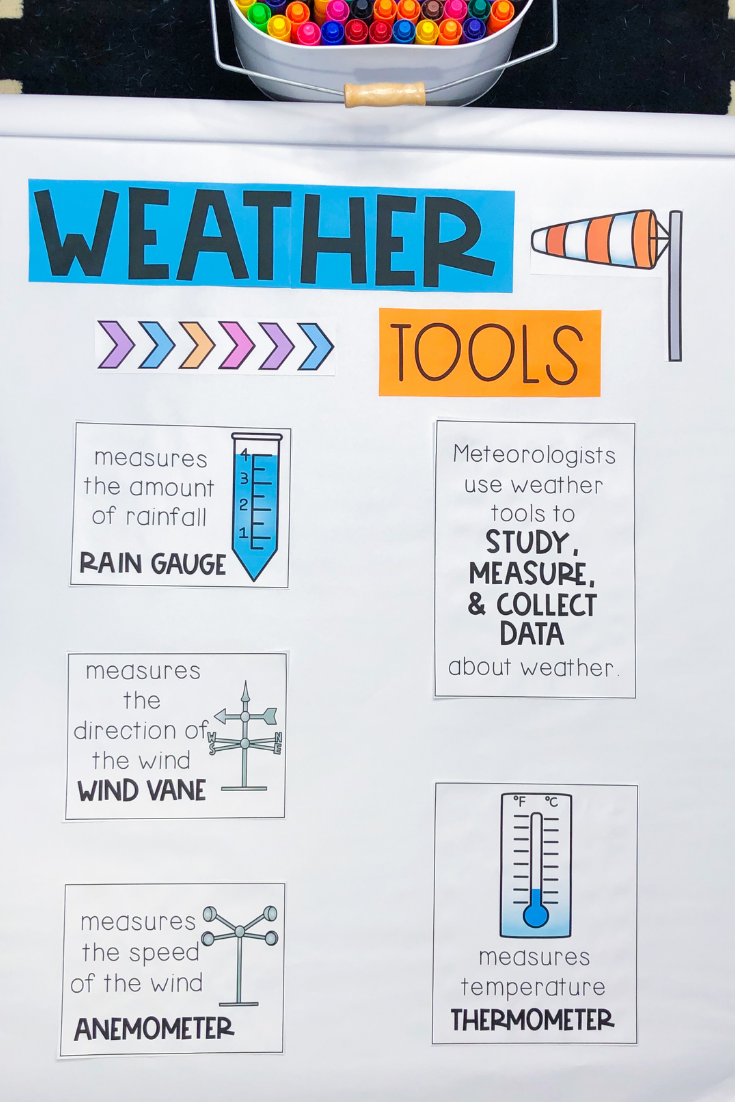 WEATHER
TOOLS
measures
the amount
of rainfall
RAIN GAUGE
4
3
2
1
Meteorologists
use weather
tools to
STUDY,
MEASURE,
& COLLECT
DATA
about weather.
measures
the
direction of
the wind
WIND VANE
W
N
S
E
measures
the speed
of the wind
ANEMOMETER
°F °C
measures
temperature
THERMOMETER